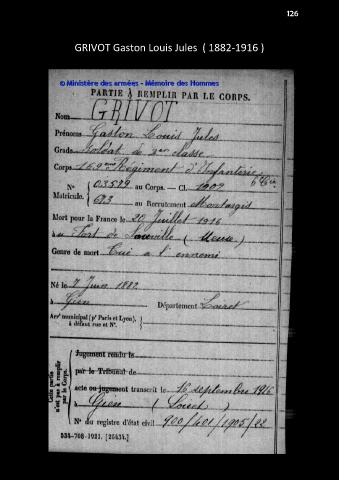 126
GRIVOT Gaston Louis Jules ( 1882-1916 )
© Ministère des armées - Mémoire des Hommes
PARTIE À REMPLIR PAR LE CORPS.
Nom GRIVOT
Prénoms Gaston Louis Jules
Grade Soldat de 2me classe
Corps 169me Régiment d'Infanterie 6e Cie
N° Matricule. 03599 au Corps. — Cl. 1902
693 au Recrutement Montargis
Mort pour la France le 20 Juillet 1916
au Fort de Souville ( Meuse )
Genre de mort Tué à l'ennemi
Né le 7 Juin 1882
à Gien Département Loiret
Arrt municipal (pr Paris et Lyon), à défaut rue et N°.
Cette partie n'est pas à remplir par le Corps.
Jugement rendu le
par le Tribunal de
acte ou jugement transcrit le 16 septembre 1916
à Gien ( Loiret )
N° du registre d'état civil 900/401/1905/22
534-708-1921. [26434.]